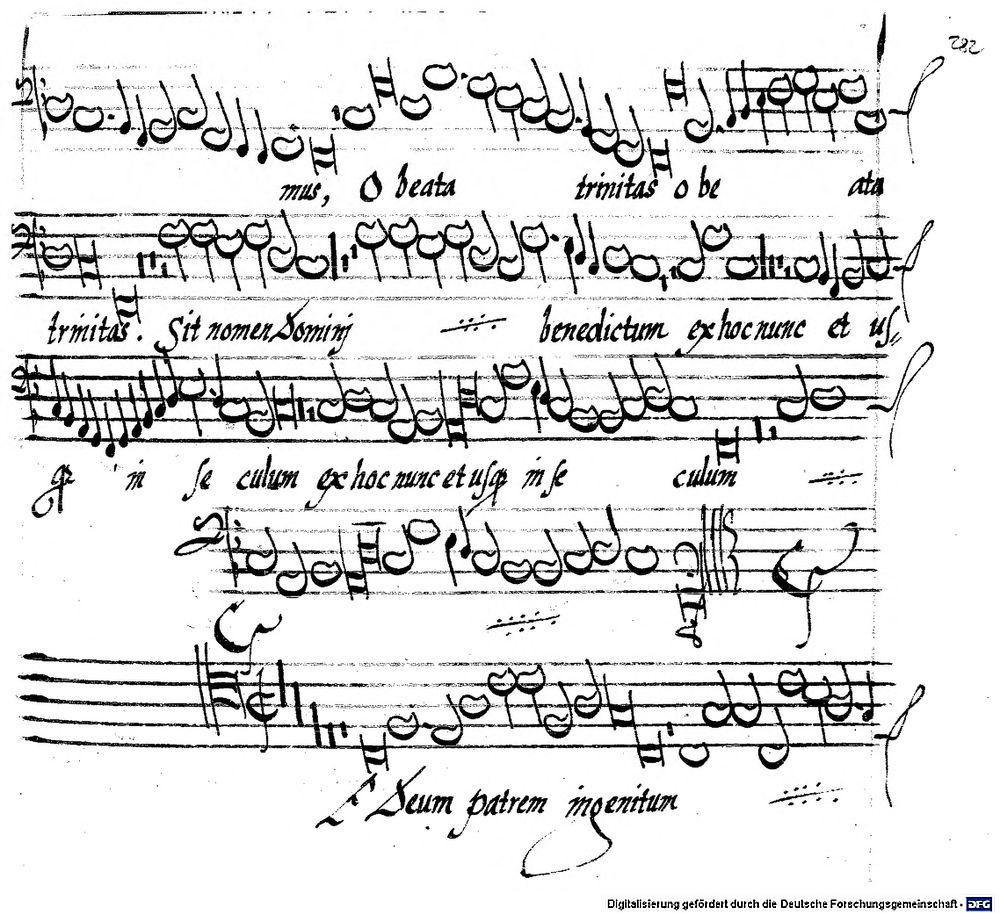 282
mus, O beata trinitas o be ata
trinitas. Sit nomen Dominj benedictum ex hoc nunc et us,,
qȝ in se culum ex hoc nunc et usqȝ in se culum
Deum patrem ingenitum
Digitalisierung gefördert durch die Deutsche Forschungsgemeinschaft - DFG